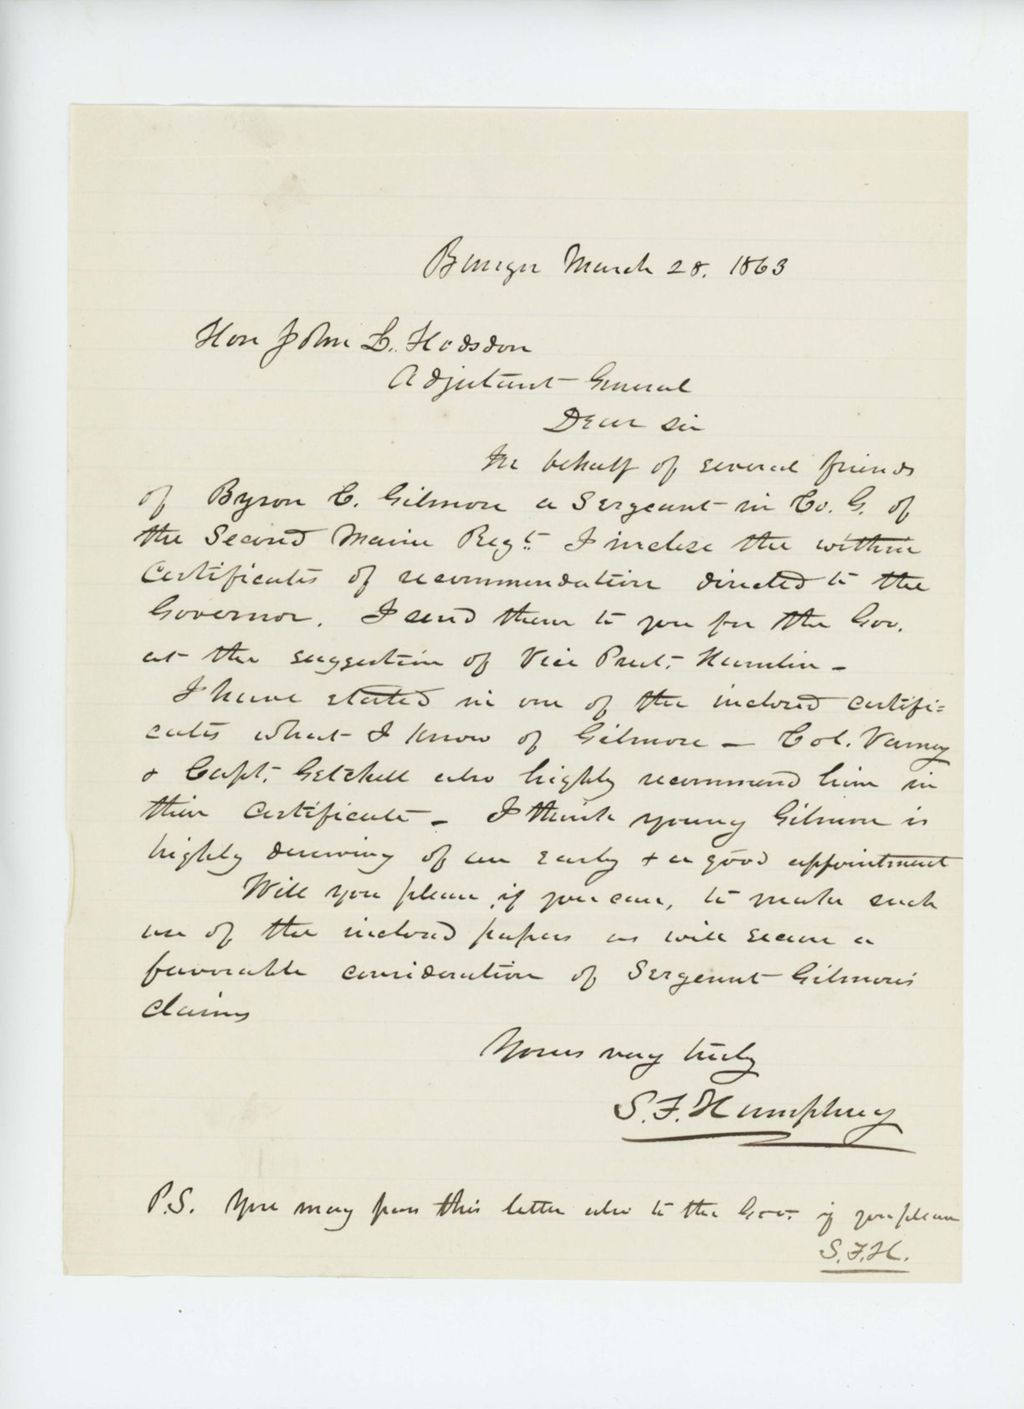 Bangor March 28. 1863
Hon John L. Hodsdon
Adjutant General
Dear Sir
In behalf of several friends
of Byron C. Gilmore a Sergeant in Co. G. of
the Second Maine Regt. I inclose the within
Certificates of recommendation directed to the
Governor. I send them to you for the Gov.
at the suggestion of Vice Prest. Hamlin -
I have stated in one of the inclosed certifi=
cates what I know of Gilmore - Col. Varney
& Capt. Getchell also highly recommend him in
their Certificate - I think young Gilmore is
highly deserving of an early & a good appointment
Will you please, if you can, to make such
use of the inclosed papers as will secure a
favorable consideration of Sergeant Gilmore's
claims
Yours very truly
S. F. Humphrey
P.S. You may pass this letter also to the Gov. if you please
S.F.H.